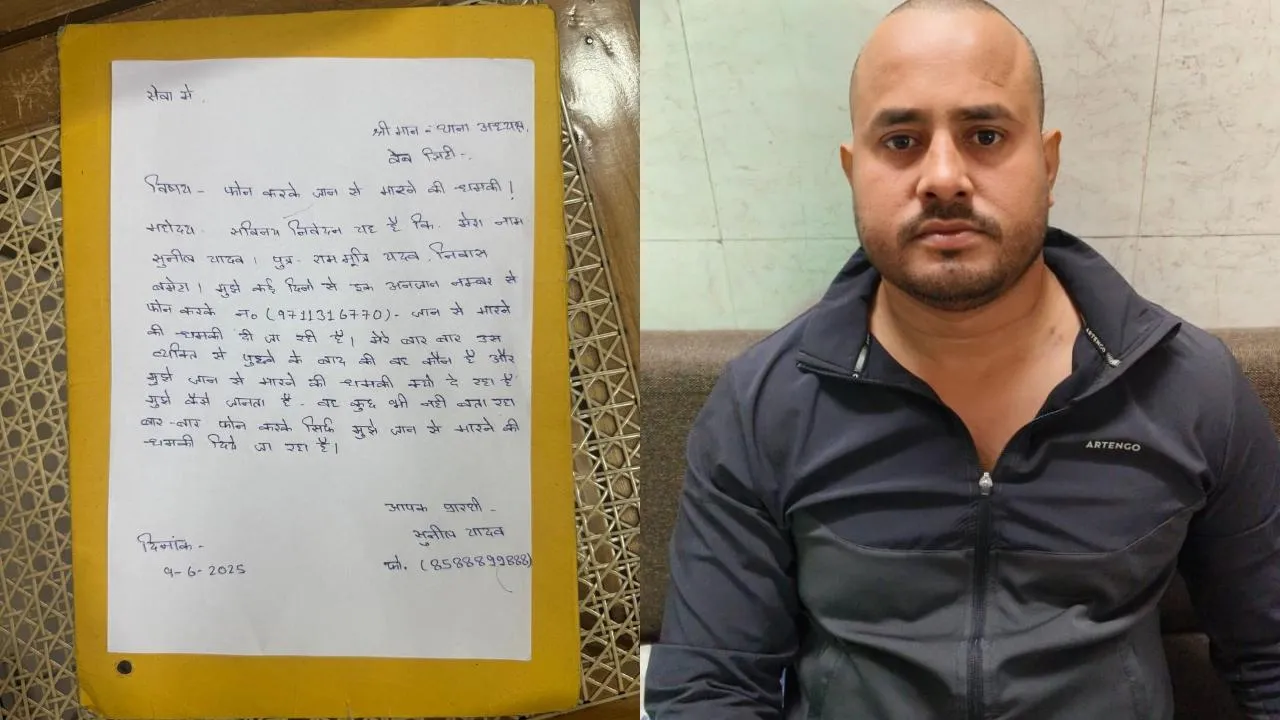 सेवा मे,
श्री मान - थाना अध्यक्ष,
वेब सिटी -.
विषय - फोन करके जान से मारने की धमकी !
महोदय सविनय निवेदन यह है कि. मेरा नाम
सुनील यादव । पुत्र - राम मूर्ति यादव, निवास
। मुझे कई दिनो से इक अनजान नम्बर से
फोन करके न० (9711316770) - जान से मारने
की धमकी दी जा रही है । मेरे बार बार उस
व्यक्ति से पुछने के बाद की वह कौन है और
मुझे जान से मारने की धमकी क्यो दे रहा है
मुझे कैसे जानता है - वह कुछ भी नही बता रहा
बार-बार फोन करके सिर्फ मुझे जान से मारने की
धमकी दिये जा रहा है ।
आपक प्रार्थी -
सुनील यादव
दिनांक -
9-6-2025
फो. (8588899888)
ARTENGO
ARTENGO